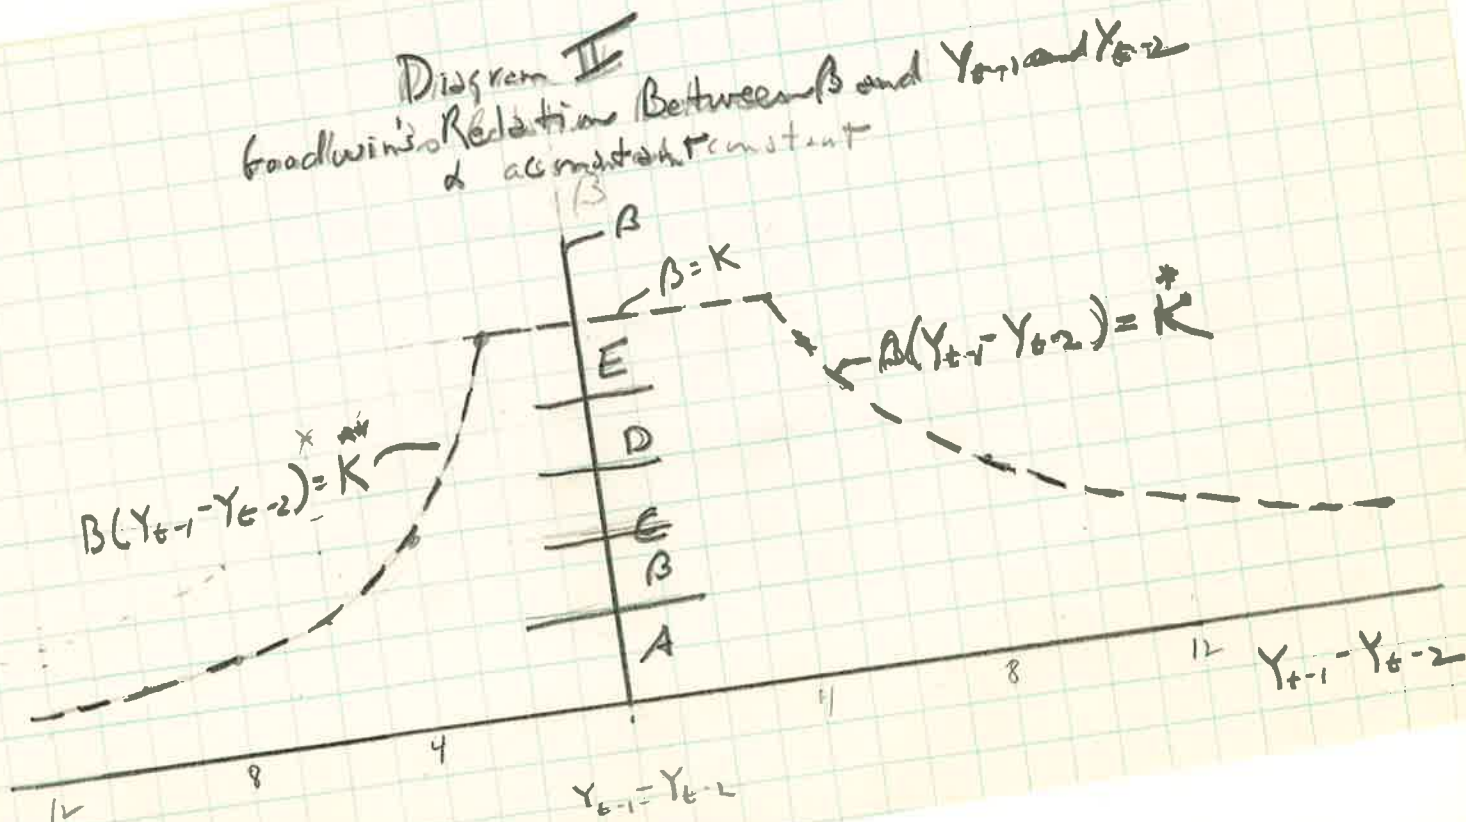 Diagram II
Goodwin's Relation Between β and Yt-1 and Yt-2
α constant
β
β
β = K
B(Yt-1 - Yt-2) = K*
B(Yt-1 - Yt-2) = K**
E
D
C
B
A
12
8
4
4
8
12
Yt-1 - Yt-2
Yt-1 = Yt-2